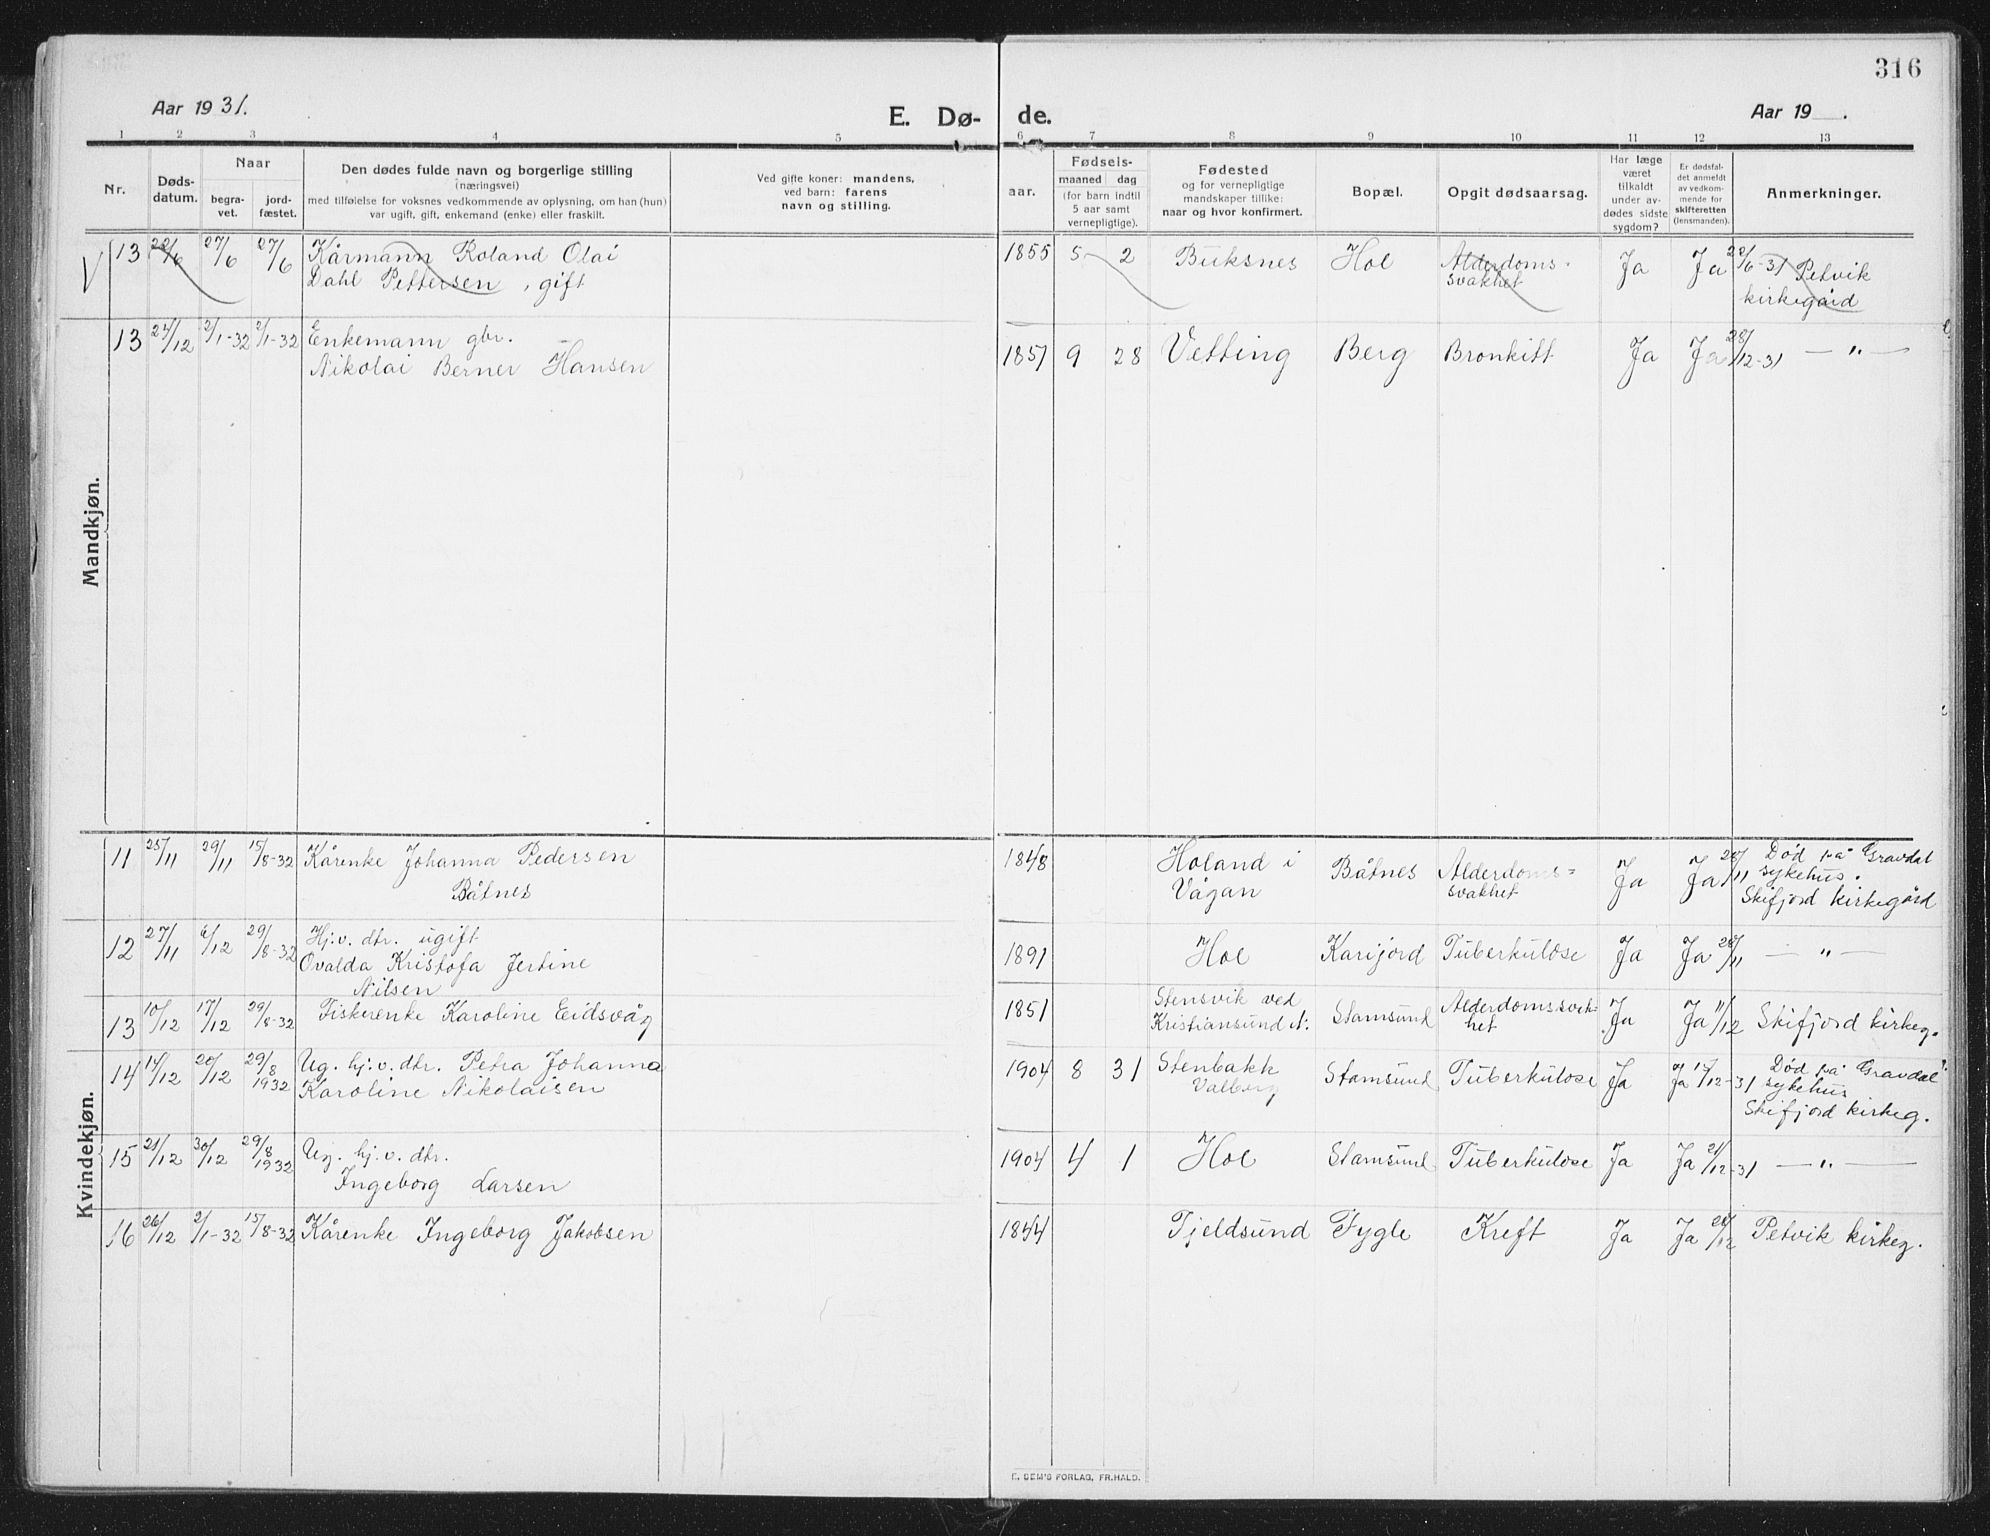 316
Aar 1931.
E. Dø-
de.
Aar 19 .
1 2 3 4 5 6 7 8 9 10 11 12 13
Nr.
Døds-
datum.
Naar
begra-
vet.
jord-
fæstet.
Den dødes fulde navn og borgerlige stilling
(næringsvei)
med tilføielse for voksnes vedkommende av oplysning, om han (hun)
var ugift, gift, enkemand (enke) eller fraskilt.
Ved gifte koner: mandens,
ved barn: farens
navn og stilling.
aar.
Fødsels-
maaned dag
(for barn indtil
5 aar samt
vernepligtige).
Fødested
og for vernepligtige
mandskaper tillike:
naar og hvor konfirmert.
Bopæl.
Opgit dødsaarsag.
Har læge
været
tilkaldt
under av-
dødes sidste
sygdom?
Er dødsfal-
det anmeldt
av vedkom-
mende for
skifteretten
(lensmanden).
Anmerkninger.
Mandkjøn.
V 13 22/6 27/6 27/6 Kårmann Roland Olai
Dahl Pettersen, gift
1855 5 2 Buksnes Hol Alderdoms-
svakhet
Ja Ja 22/6-31 Petvik
kirkegård
13 24/12 2/1-32 2/1-32 Enkemann gbr.
Nikolai Berner Hansen
1851 9 28 Vetting Berg Bronkitt Ja Ja 28/12-31 — " —
Kvindekjøn.
11 25/11 29/11 15/8-32 Kårenke Johanna Pedersen
Båtnes
1848 Holand i
Vågan
Båtnes Alderdoms=
svakhet
Ja Ja 28/11 Død på Gravdal
sykehus.
Skifjord kirkegård
12 27/11 6/12 29/8-32 Hj.v. dtr. ugift
Ovalda Kristofa Jertine
Nilsen
1891 Hol Karijord Tuberkulose Ja Ja 28/11 — " —
13 10/12 17/12 29/8-32 Fiskerenke Karoline Eidsvåg
1851 Stensvik ved
Kristiansund N.
Stamsund Alderdomssvak-
het
Ja Ja 11/12 Skifjord kirkeg.
14 14/12 20/12 29/8 1932 Ug. hj.v. dtr. Petra Johanna
Karoline Nikolaisen
1904 8 31 Stenbakk
Valberg
Stamsund Tuberkulose Ja Ja 15/12-31 Død på Gravdal
sykehus
Skifjord kirkeg.
15 21/12 30/12 29/8 1932 Ug. hj.v. dtr.
Ingeborg Larsen
1904 4 1 Hol Stamsund Tuberkulose Ja Ja 21/12-31 — " —
16 26/12 2/1-32 15/8-32 Kårenke Ingeborg Jakobsen
1844 Tjeldsund Fygle Kreft Ja Ja 28/12 Petvik kirkeg.
E. SEM'S FORLAG, FR.HALD.